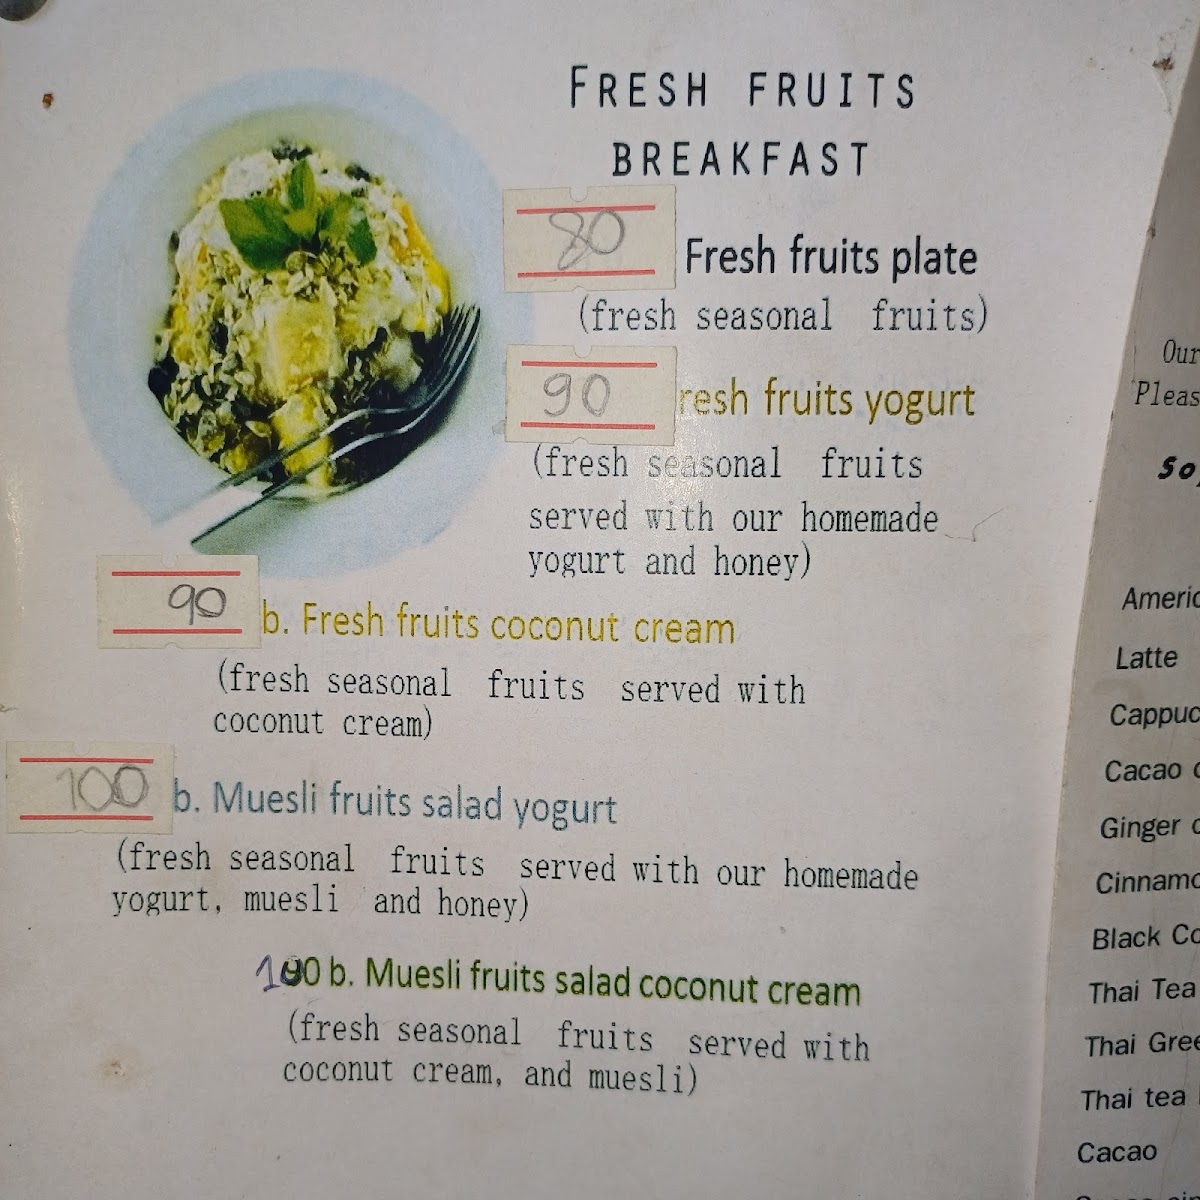 FRESH FRUITS
BREAKFAST
80 Fresh fruits plate
(fresh seasonal fruits)
90 resh fruits yogurt
(fresh seasonal fruits
served with our homemade
yogurt and honey)
90 b. Fresh fruits coconut cream
(fresh seasonal fruits served with
coconut cream)
100 b. Muesli fruits salad yogurt
(fresh seasonal fruits served with our homemade
yogurt, muesli and honey)
100 b. Muesli fruits salad coconut cream
(fresh seasonal fruits served with
coconut cream, and muesli)
Our
Pleas
So
Americ
Latte
Cappuc
Cacao
Ginger
Cinnamo
Black Co
Thai Tea
Thai Gree
Thai tea
Cacao